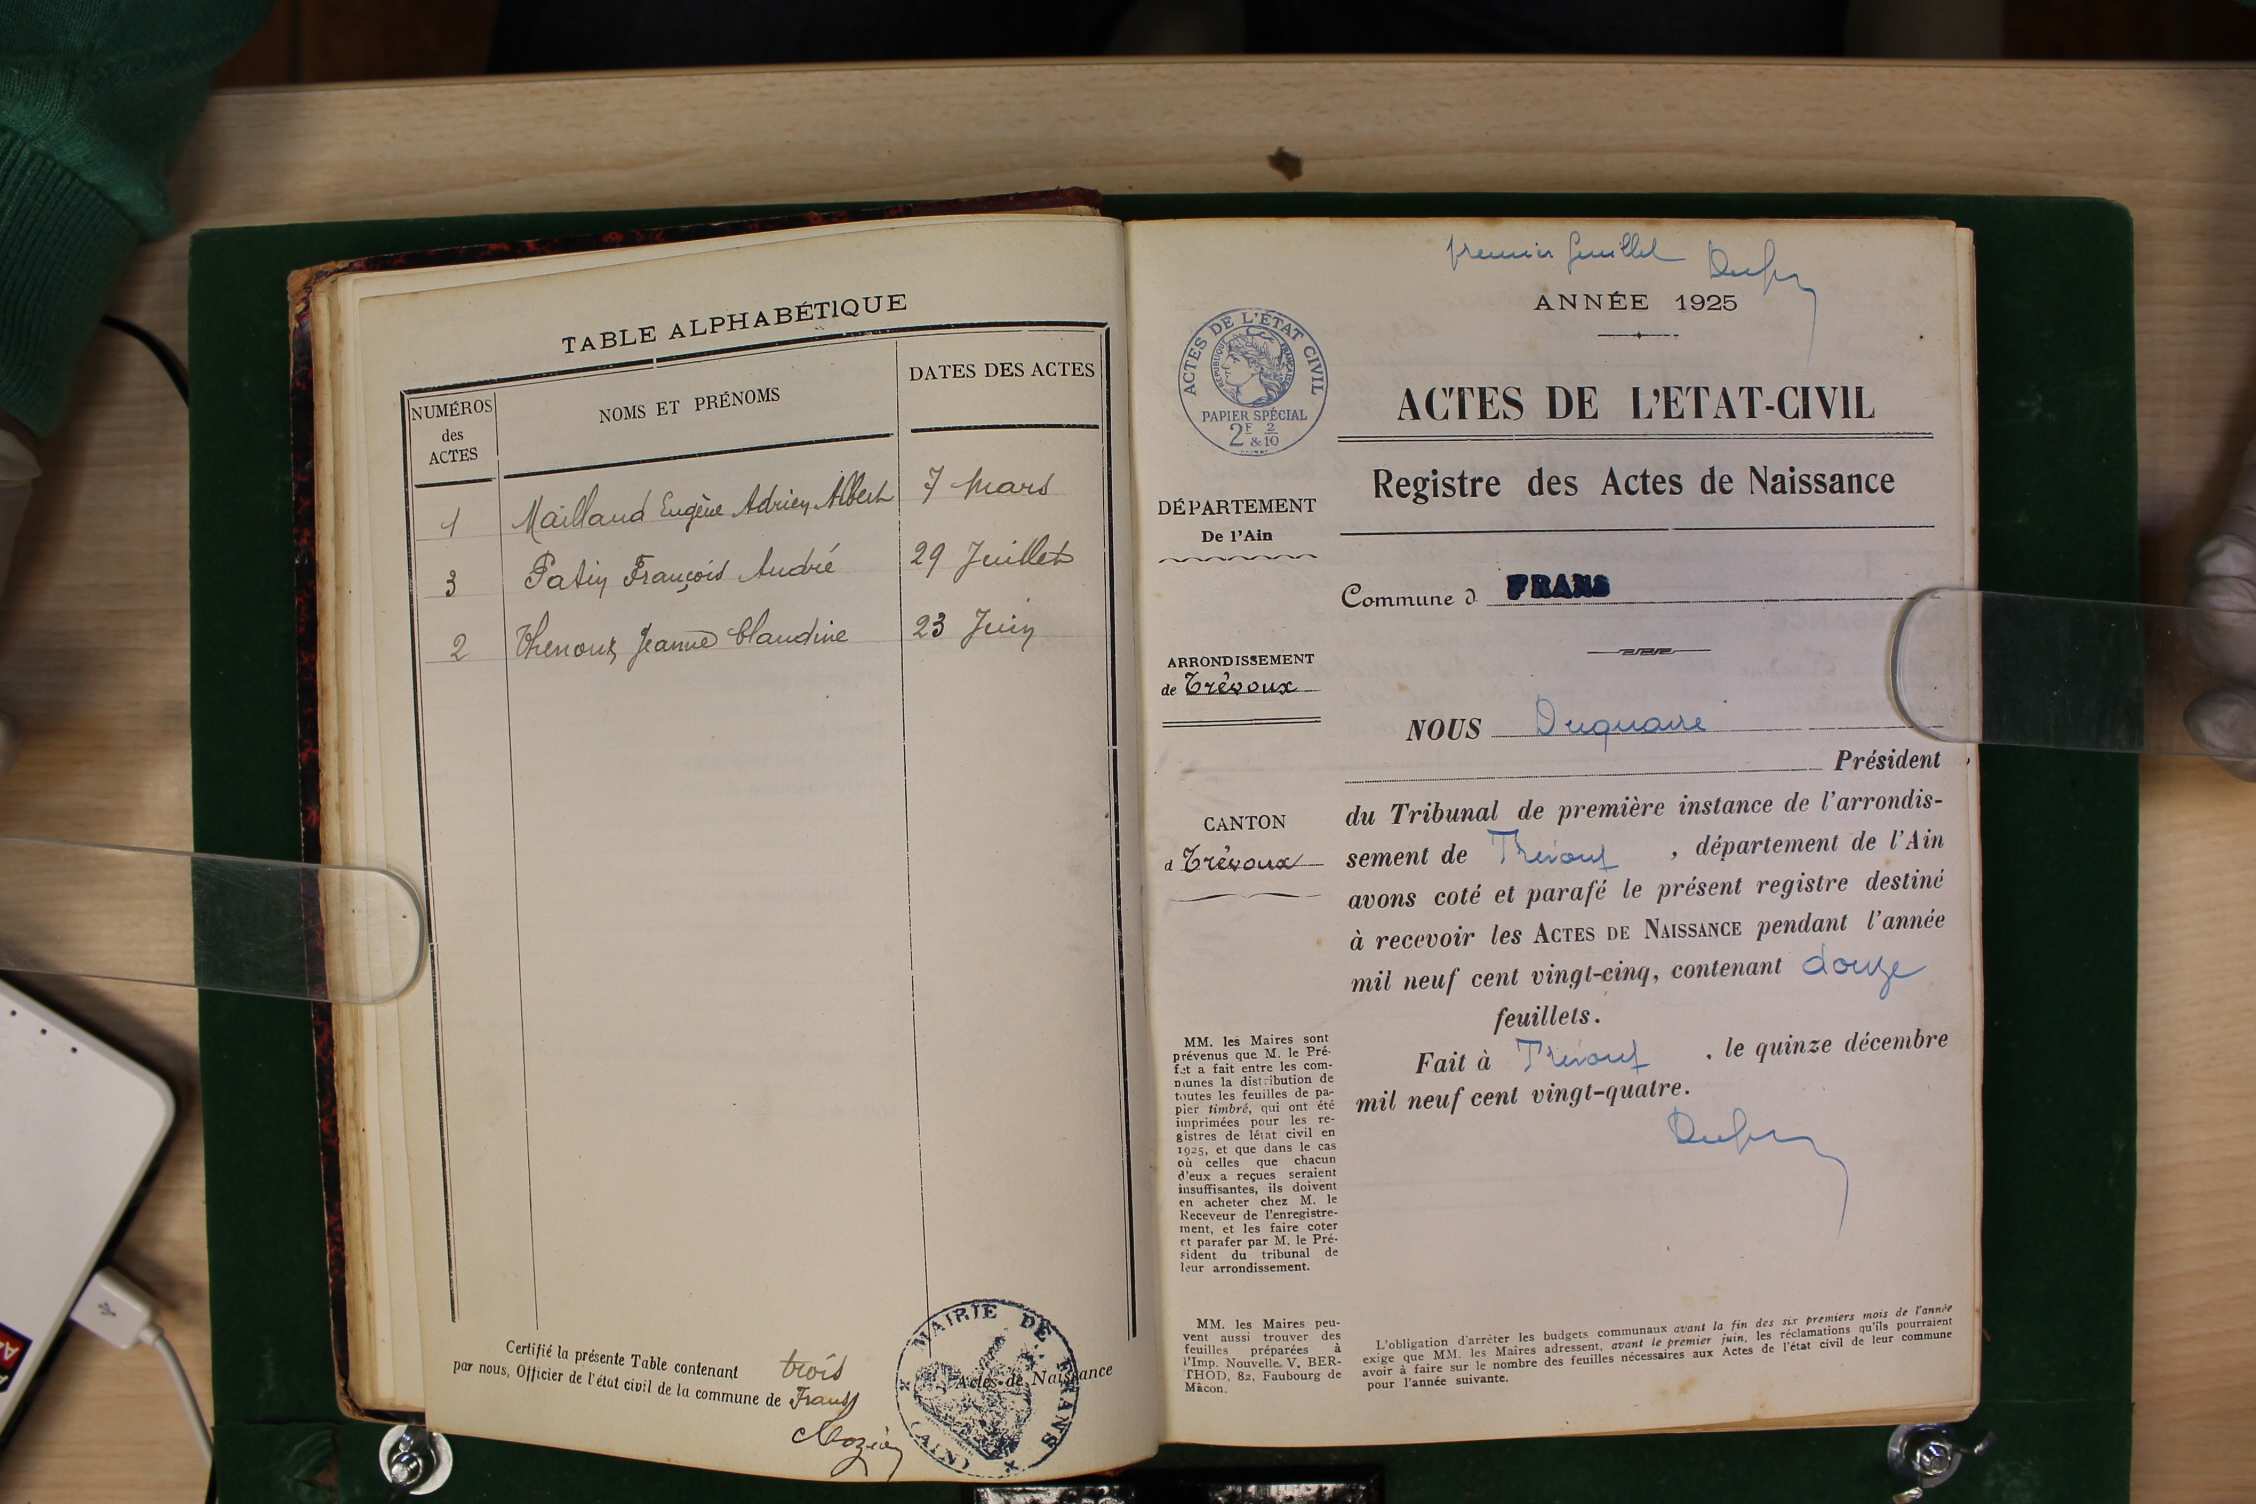 TABLE ALPHABÉTIQUE
NUMÉROS
des
ACTES
NOMS ET PRÉNOMS
DATES DES ACTES
1 Mailland Eugène Adrien Albert 7 Mars
3 Patin François André 29 Juillet
2 Thenoux Jeanne Claudine 23 Juin
Certifié la présente Table contenant trois Actes de Naissance
par nous, Officier de l'état civil de la commune de Frans
MAIRIE DE FRANS
(AIN)
premier feuillet
ANNÉE 1925
ACTES DE L'ÉTAT CIVIL
RÉPUBLIQUE FRANÇAISE
PAPIER SPÉCIAL
2F & 2/10
ACTES DE L'ETAT-CIVIL
Registre des Actes de Naissance
DÉPARTEMENT
De l'Ain
Commune d FRANS
ARRONDISSEMENT
de Trévoux
CANTON
d Trévoux
NOUS Duquaire
Président
du Tribunal de première instance de l'arrondis-
sement de Trévoux, département de l'Ain
avons coté et parafé le présent registre destiné
à recevoir les ACTES DE NAISSANCE pendant l'année
mil neuf cent vingt-cinq, contenant douze
feuillets.
Fait à Trévoux, le quinze décembre
mil neuf cent vingt-quatre.
MM. les Maires sont
prévenus que M. le Pré-
fet a fait entre les com-
munes la distribution de
toutes les feuilles de pa-
pier timbré, qui ont été
imprimées pour les re-
gistres de létat civil en
1925, et que dans le cas
où celles que chacun
d'eux a reçues seraient
insuffisantes, ils doivent
en acheter chez M. le
Receveur de l'enregistre-
ment, et les faire coter
et parafer par M. le Pré-
sident du tribunal de
leur arrondissement.
MM. les Maires peu-
vent aussi trouver des
feuilles préparées à
l'Imp. Nouvelle. V. BER-
THOD, 82, Faubourg de
Mâcon.
L'obligation d'arrêter les budgets communaux avant la fin des six premiers mois de l'année
exige que MM. les Maires adressent, avant le premier juin, les réclamations qu'ils pourraient
avoir à faire sur le nombre des feuilles nécessaires aux Actes de l'état civil de leur commune
pour l'année suivante.